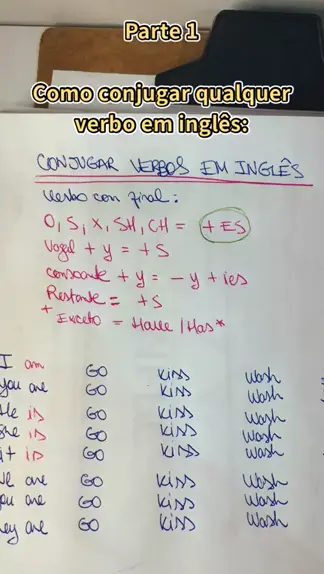 Parte 1
Como conjugar qualquer
verbo em inglês:
CONJUGAR VERBOS EM INGLÊS
Verbo com final:
O, S, X, SH, CH = + ES
Vogal + y = + S
consoante + y = - y + ies
Restante = + S
+ Exceto = Have / Has *
I am GO kiss Wash
you are GO kiss Wash
He is GO kiss Wash
she is GO kiss Wash
it is GO kiss Wash
we are GO kiss Wash
you are GO kiss Wash
they are GO kiss Wash